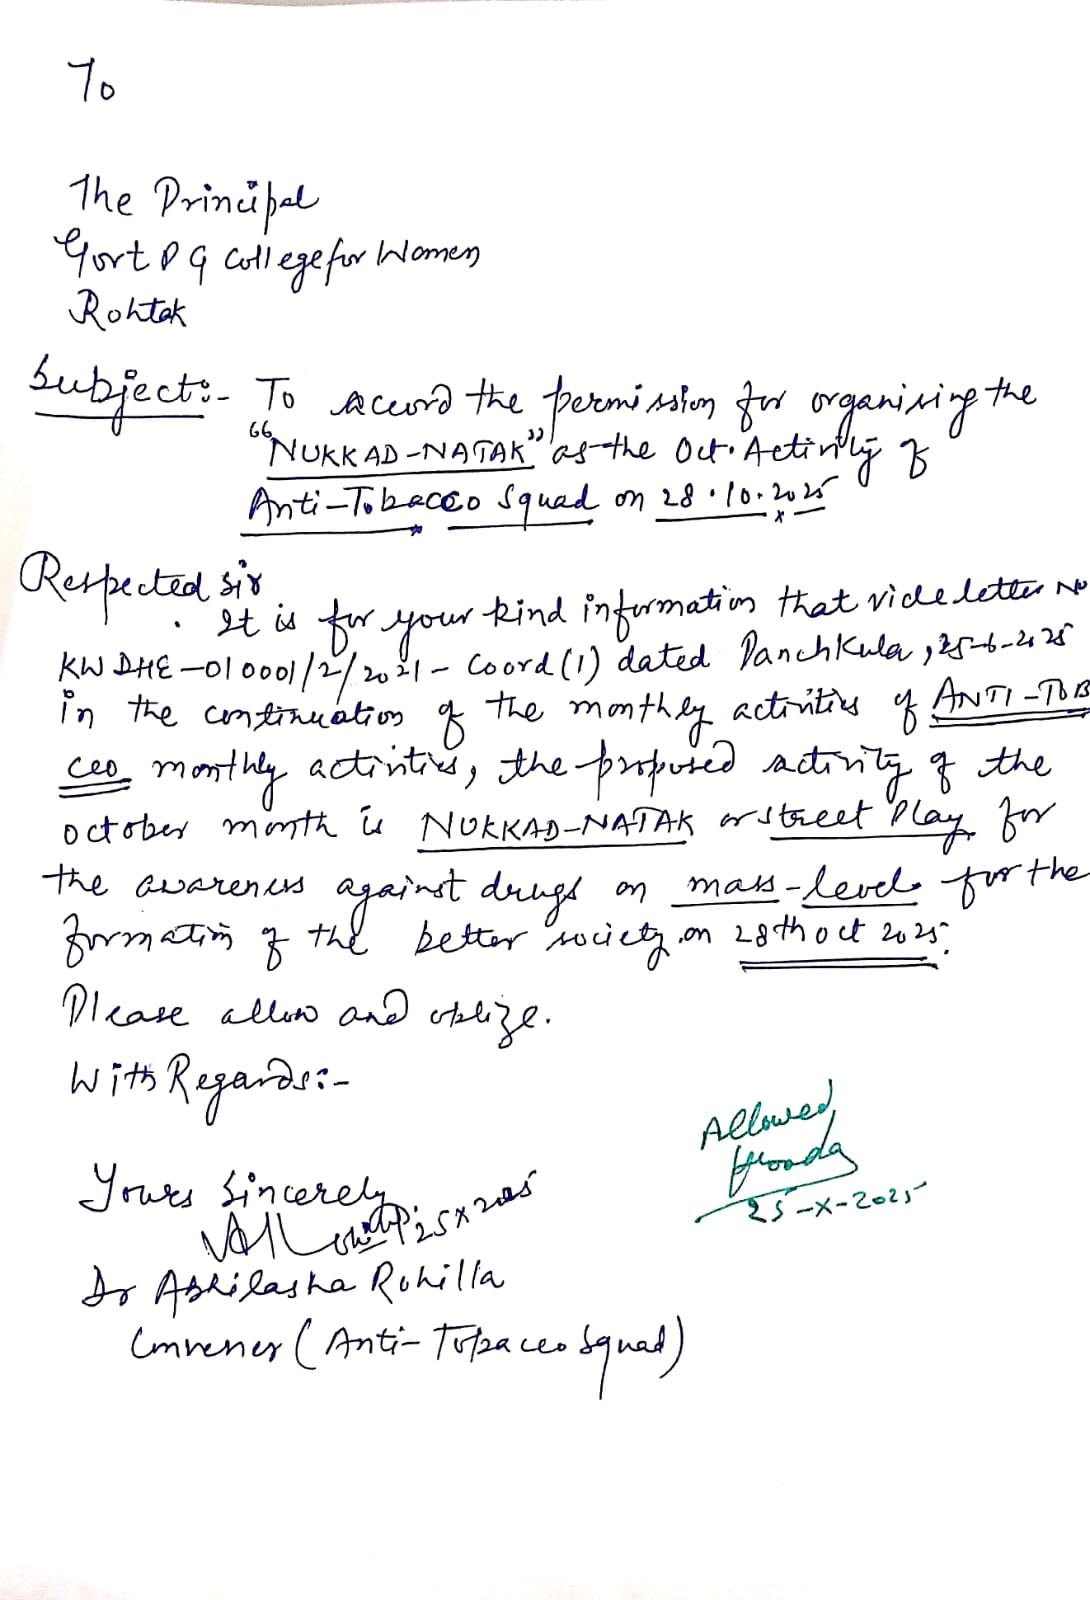 To
The Principal
Govt P G College for Women
Rohtak
Subject:- To accord the permission for organising the
"NUKKAD-NATAK" as the Oct. Activity of
Anti-Tobacco Squad on 28.10.2025
Respected Sir
It is for your kind information that vide letter No
KW DHE-010001/2/2021- Coord (1) dated Panchkula, 25-6-2025
in the continuation of the monthly activities of ANTI-TOBA
CCO monthly activities, the proposed activity of the
October month is NUKKAD-NATAK or Street Play for
the awareness against drugs on mass-level for the
formation of the better society on 28th Oct 2025.
Please allow and oblize.
With Regards:-
Allowed
Hooda
25-X-2025
Yours Sincerely
25 X 2025
Dr Abhilasha Rohilla
Convener (Anti-Tobacco Squad)